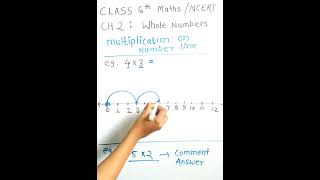 CLASS 6th Maths/NCERT
CH 2: Whole Numbers
multiplication on
Number line
eg. 4×3 =
0 1 2 3 7 8 9 10 11 12
eg. 5×2 → Comment
Answer